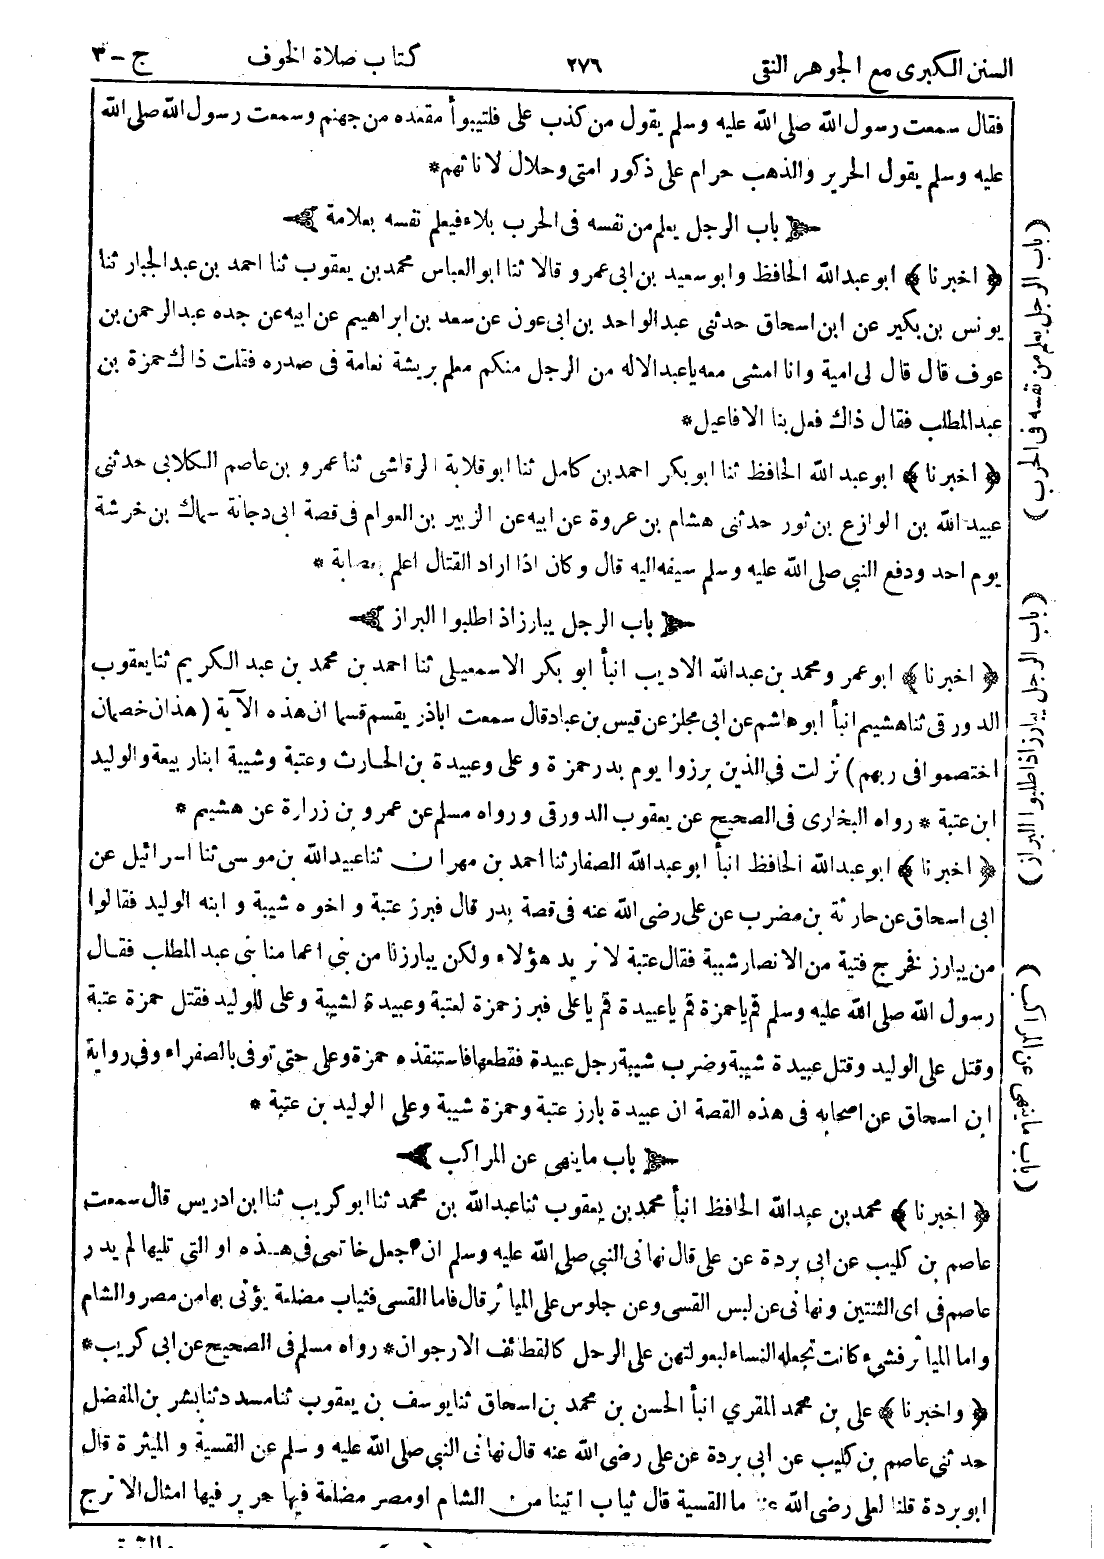 السنن الكبرى مع الجوهر النقى ٢٧٦ كتاب صلاة الخوف ج - ٣
فقال سمعت رسول الله صلى الله عليه وسلم يقول من كذب على فلتيبوأ مقعده من جهنم وسمعت رسول الله صلى الله
عليه وسلم يقول الحرير والذهب حرام على ذكور امتى وحلال لاناثهم*
باب الرجل يعلم من نفسه فى الحرب بلاء فيعلم نفسه بعلامة
﴿ اخبرنا ﴾ ابوعبدالله الحافظ وابوسعيد بن ابى عمرو قالا ثنا ابوالعباس محمد بن يعقوب ثنا احمد بن عبدالجبار ثنا
يونس بن بكير عن ابن اسحاق حدثنى عبدالواحد بن ابى عون عن سعد بن ابراهيم عن ابيه عن جده عبدالرحمن بن
عوف قال قال لى امية وانا امشى معه ياعبدالاله من الرجل منكم معلم بريشة نعامة فى صدره فقلت ذاك حمزة بن
عبدالمطلب فقال ذاك فعل بنا الافاعيل*
﴿ اخبرنا ﴾ ابوعبد الله الحافظ ثنا ابوبكر احمد بن كامل ثنا ابوقلابة الرقاشى ثنا عمرو بن عاصم الكلابى حدثنى
عبيد الله بن الوازع بن ثور حدثنى هشام بن عروة عن ابيه عن الزبير بن العوام فى قصة ابى دجانة سماك بن خرشة
يوم احد ودفع النبي صلى الله عليه وسلم سيفه اليه قال وكان اذا اراد القتال اعلم بعصابة *
باب الرجل يبارز اذا طلبوا البراز
﴿ اخبرنا ﴾ ابوعمرو محمد بن عبدالله الاديب انبأ ابو بكر الاسمعيلى ثنا احمد بن محمد بن عبد الكريم ثنا يعقوب
الدورقى ثنا هشيم انبأ ابوهاشم عن ابى مجلز عن قيس بن عباد قال سمعت اباذر يقسم قسما ان هذه الآية (هذان خصمان
اختصموا فى ربهم) نزلت فى الذين برزوا يوم بدر حمزة وعلى وعبيدة بن الحارث وعتبة وشيبة ابنا ربيعة والوليد
ابن عتبة * رواه البخارى فى الصحيح عن يعقوب الدورقى ورواه مسلم عن عمرو بن زرارة عن هشيم *
﴿ اخبرنا ﴾ ابوعبدالله الحافظ انبأ ابوعبدالله الصفار ثنا احمد بن مهران ثنا عبيدالله بن موسى ثنا اسرائيل عن
ابى اسحاق عن حارثة بن مضرب عن على رضى الله عنه فى قصة بدر قال فبرز عتبة واخوه شيبة و ابنه الوليد فقالوا
من يبارز فخرج فتية من الانصار شيبة فقال عتبة لا نريد هؤلاء ولكن يبارزنا من بنى اعمامنا بنى عبد المطلب فقال
رسول الله صلى الله عليه وسلم قم ياحمزة قم ياعبيدة قم ياعلى فبرز حمزة لعتبة وعبيدة لشيبة وعلى للوليد فقتل حمزة عتبة
وقتل على الوليد وقتل عبيدة شيبة وضرب شيبة رجل عبيدة فقطعها فاستنقذه حمزة وعلى حتى توفى بالصفراء وفى رواية
ابن اسحاق عن اصحابه فى هذه القصة ان عبيدة بارز عتبة وحمزة شيبة وعلى الوليد بن عتبة *
باب ماينهى عن المراكب
﴿ اخبرنا ﴾ محمد بن عبدالله الحافظ انبأ محمد بن يعقوب ثنا عبدالله بن محمد ثنا ابوكريب ثنا ابن ادريس قال سمعت
عاصم بن كليب عن ابى بردة عن على قال نهانى النبي صلى الله عليه وسلم ان اجعل خاتمى فى هذه او التى تليها لم يدر
عاصم فى اى الثنتين ونهانى عن لبس القسى وعن جلوس على المياثر قال فاما القسى فثياب مضلعة يؤتى بها من مصر والشام
واما المياثر فشىء كانت تجعله النساء لبعولتهن على الرحل كالقطائف الارجوان* رواه مسلم فى الصحيح عن ابى كريب*
﴿ واخبرنا ﴾ على بن محمد المقري انبأ الحسن بن محمد بن اسحاق ثنا يوسف بن يعقوب ثنا مسدد ثنا بشر بن المفضل
حدثنى عاصم بن كليب عن ابى بردة عن على رضى الله عنه قال نهانى النبي صلى الله عليه وسلم عن القسية و الميثرة قال
ابوبردة قلنا لعلى رضى الله عنه ما القسية قال ثياب اتينا من الشام او مصر مضلعة فيها حرير فيها امثال الاترج
(باب الرجل يعلم من نفسه فى الحرب)
(باب الرجل يبارز اذا طلبوا البراز)
(باب ماينهى عن المراكب)